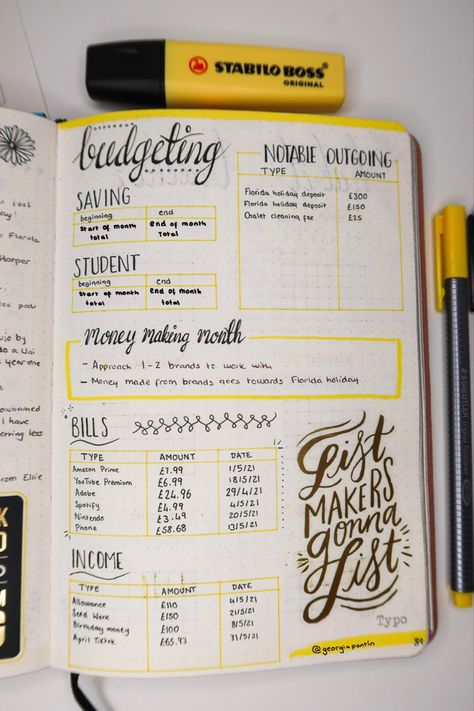 STABILO BOSS
ORIGINAL
budgeting
SAVING
beginning end
Start of month total End of month Total
STUDENT
beginning end
Start of month total End of month total
NOTABLE OUTGOING
TYPE AMOUNT
Florida holiday deposit £300
Florida holiday deposit £150
Chalet cleaning fee £25
Money Making Month
- Approach 1-2 brands to work with
- Money made from brands goes towards Florida holiday
BILLS
TYPE AMOUNT DATE
Amazon Prime £7.99 1/5/21
YouTube Premium £6.99 18/5/21
Adobe £24.96 29/4/21
Spotify £4.99 4/5/21
Nintendo £3.49 20/5/21
Phone £58.68 13/5/21
INCOME
TYPE AMOUNT DATE
Allowance £110 4/5/21
Seed Work £150 21/5/21
Birthday money £100 8/5/21
April TikTok £65.93 31/5/21
List
MAKERS
gonna
List
Typo
@georgiapontin
Florida
Harper
from Ellie